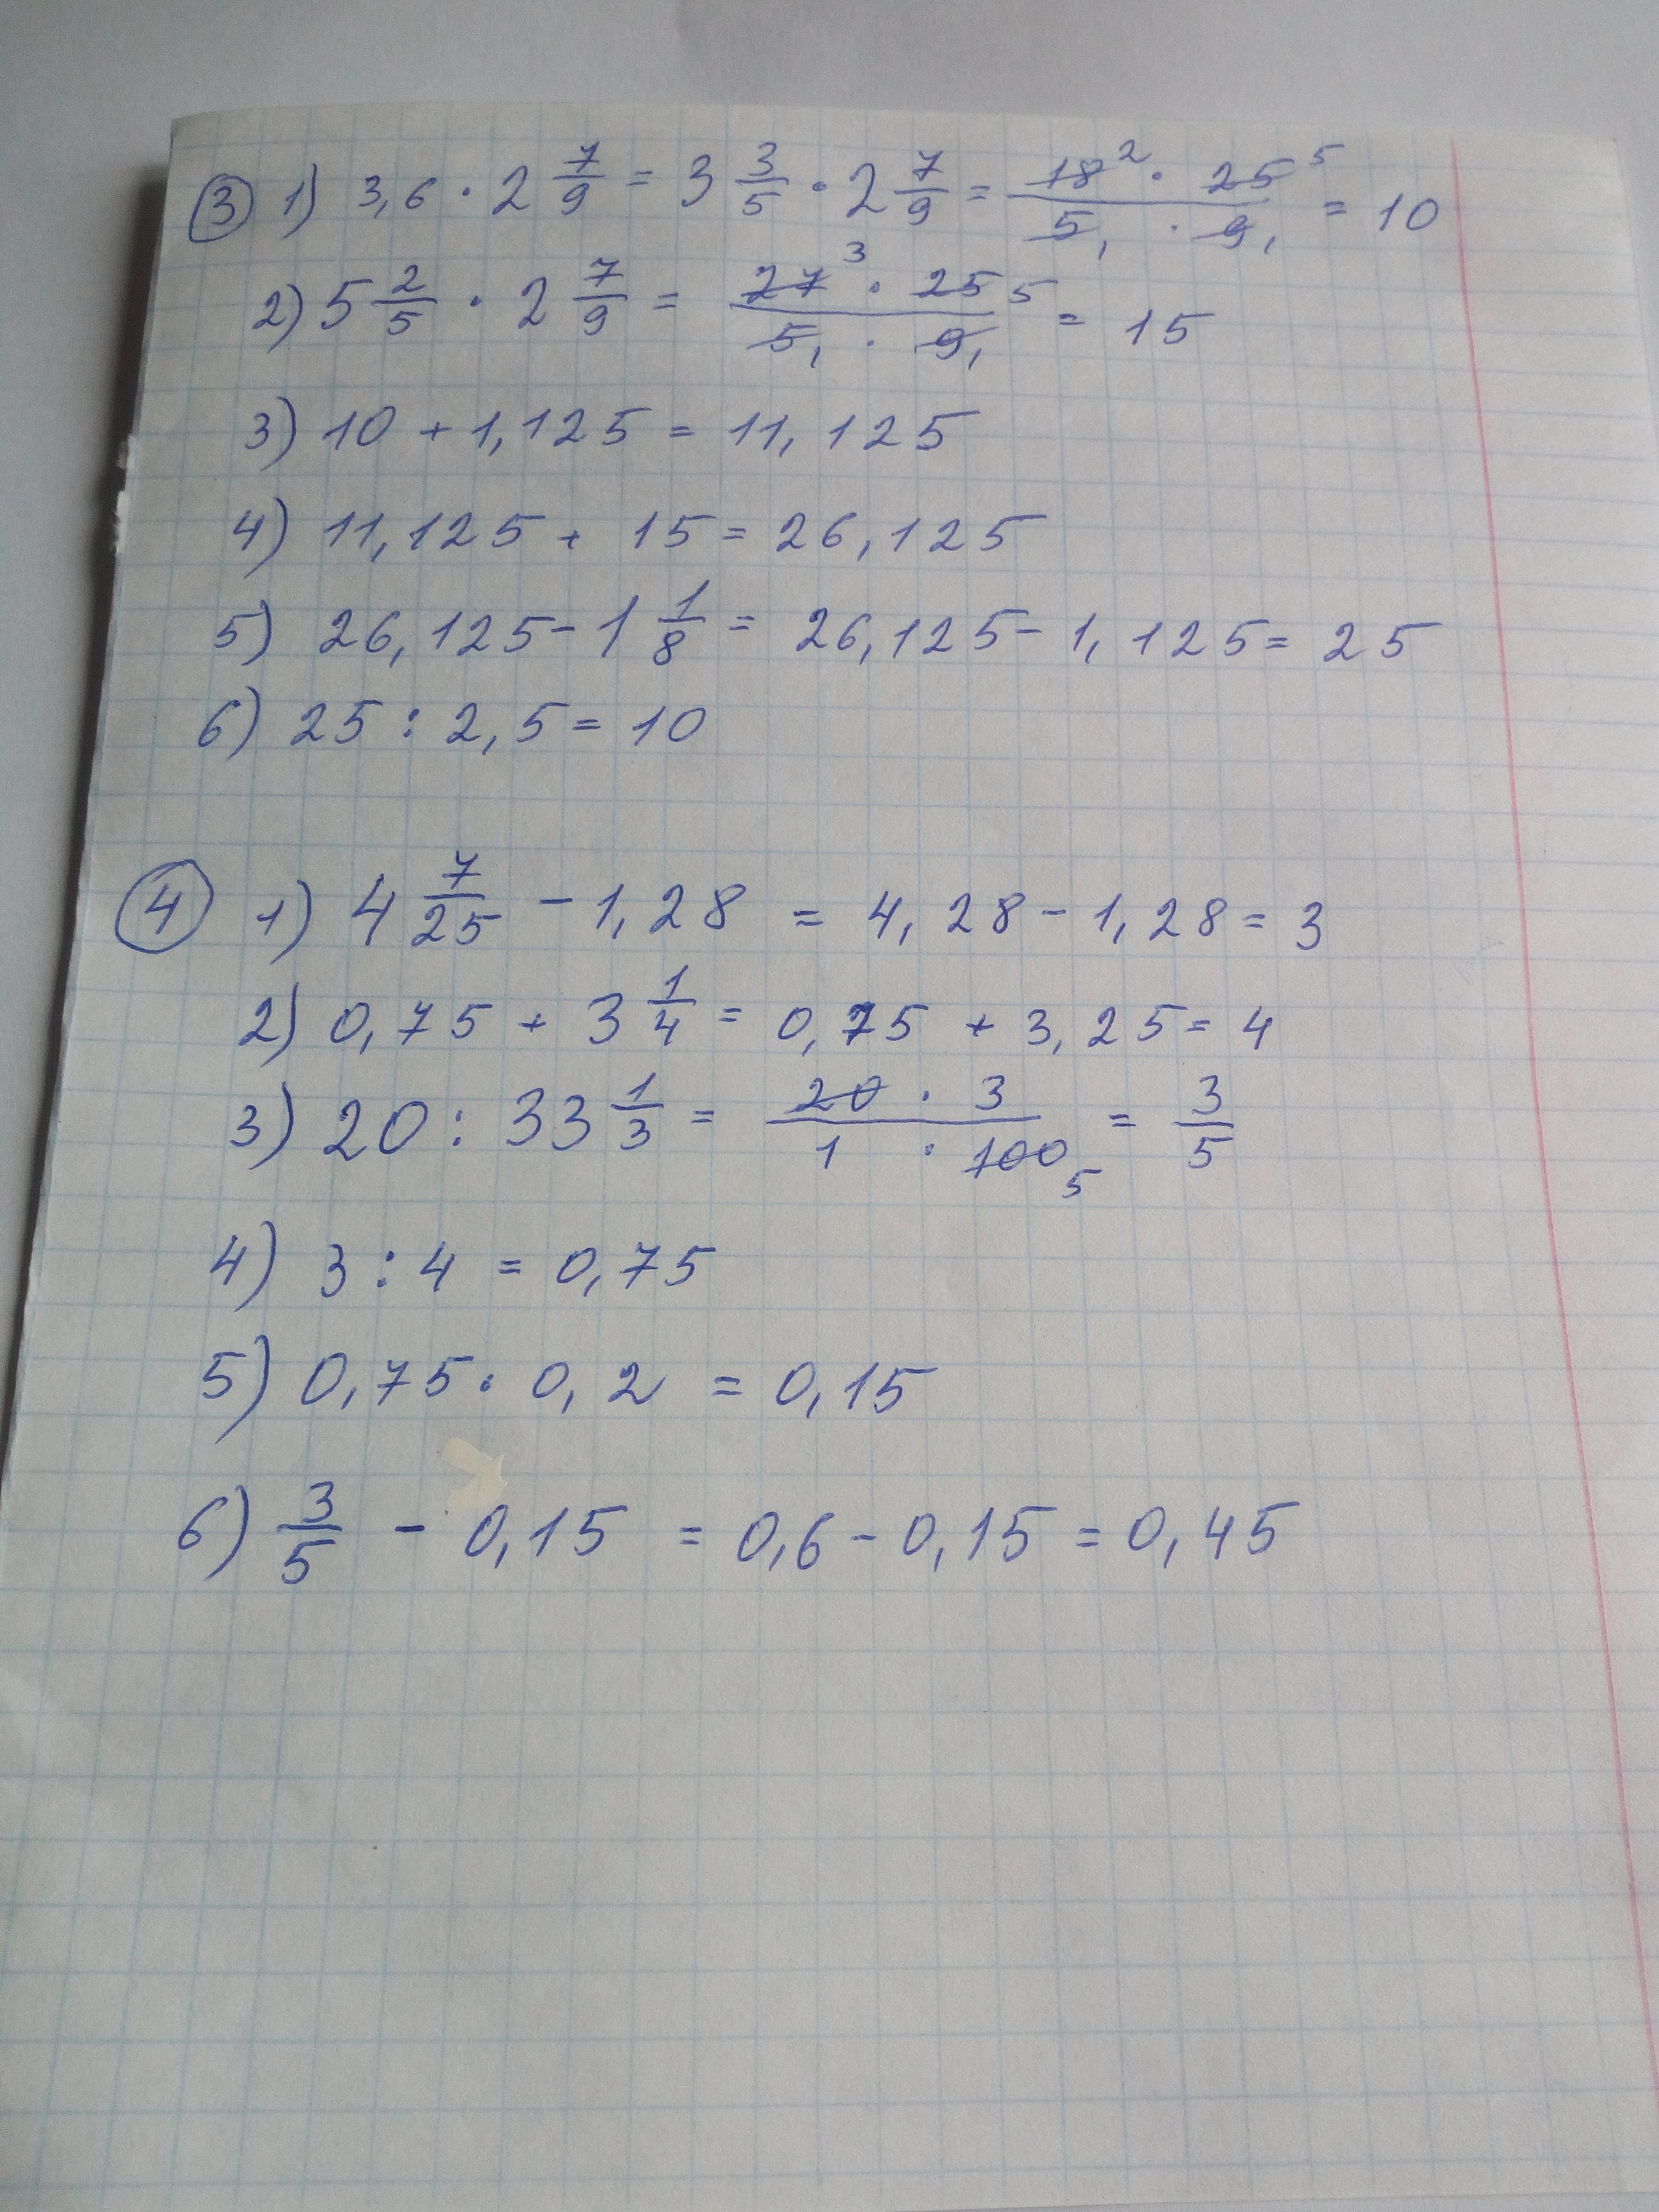 ③ 1) 3,6 · 2 7/9 = 3 3/5 · 2 7/9 = 18² · 25⁵ / 5₁ · 9₁ = 10
2) 5 2/5 · 2 7/9 = 27³ · 25 5 / 5₁ · 9₁ = 15
3) 10 + 1,125 = 11,125
4) 11,125 + 15 = 26,125
5) 26,125 - 1 1/8 = 26,125 - 1,125 = 25
6) 25 : 2,5 = 10
④ 1) 4 7/25 - 1,28 = 4,28 - 1,28 = 3
2) 0,75 + 3 1/4 = 0,75 + 3,25 = 4
3) 20 : 33 1/3 = 20 · 3 / 1 · 100₅ = 3/5
4) 3 : 4 = 0,75
5) 0,75 · 0,2 = 0,15
6) 3/5 - 0,15 = 0,6 - 0,15 = 0,45